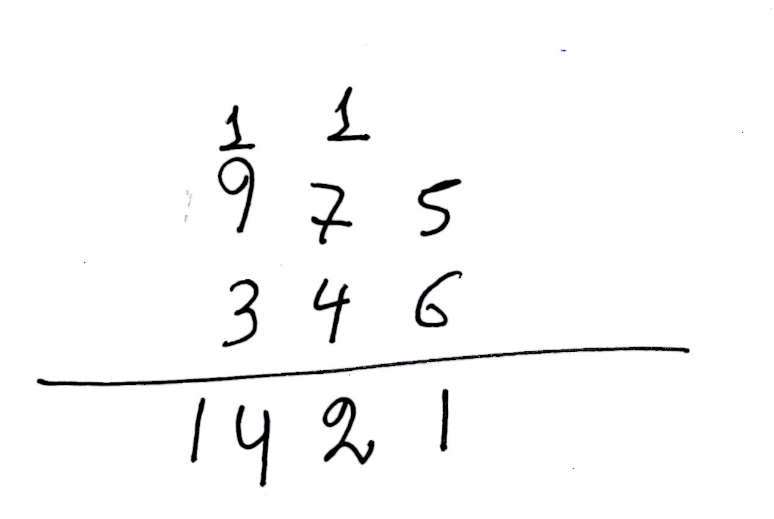 1 1
9 7 5
3 4 6
1 4 2 1